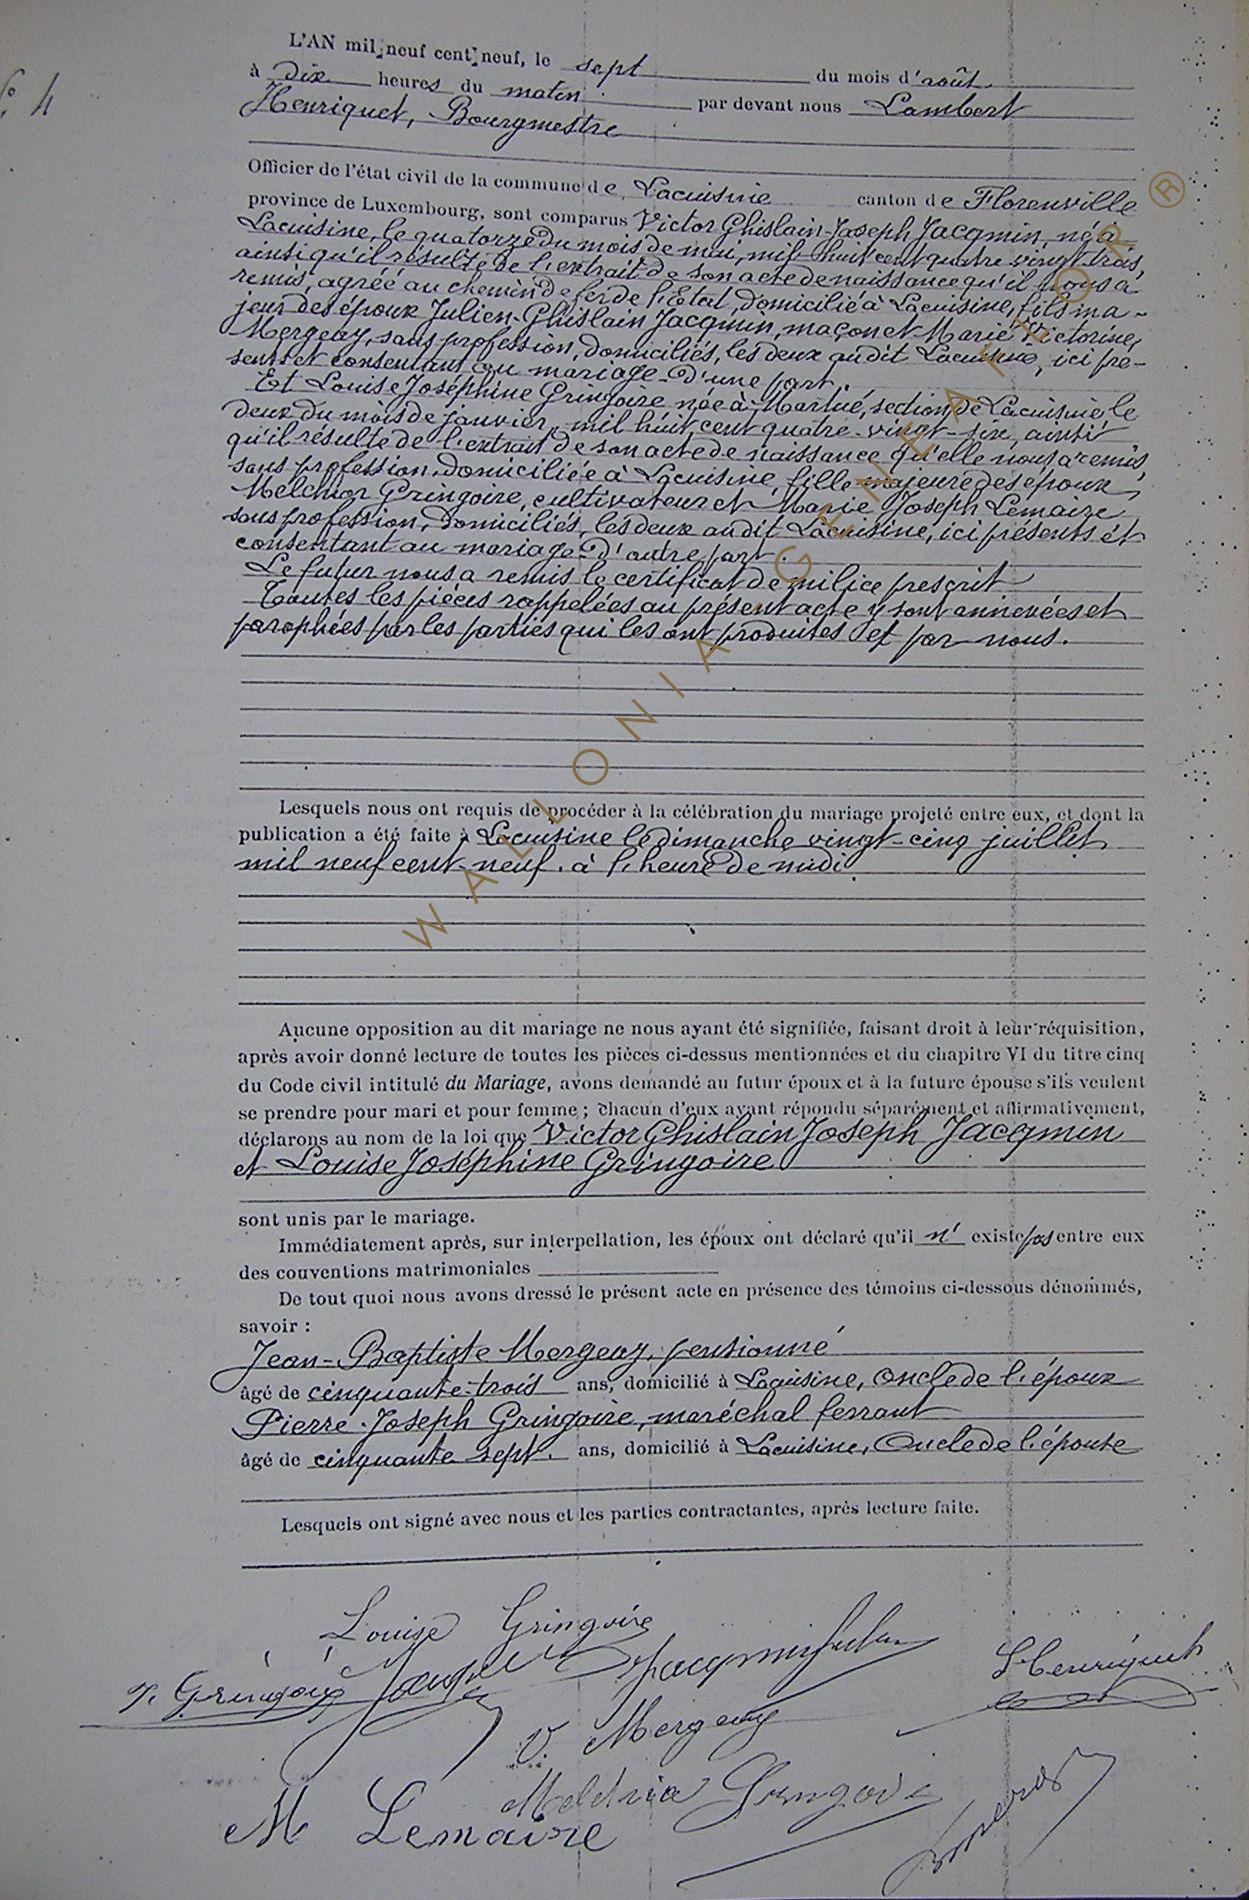 N° 4
L'AN mil neuf cent neuf, le sept du mois d'août
à dix heures du matin par devant nous Lambert
Henriquet, Bourgmestre
Officier de l'état civil de la commune de Lacuisine canton de Florenville
province de Luxembourg, sont comparus Victor Ghislain Joseph Jacqmin, né à
Lacuisine, le quatorze du mois de mai, mil huit cent quatre-vingt-trois,
ainsi qu'il résulte de l'extrait de son acte de naissance qu'il nous a
remis, agréé au chemin de fer de l'Etat, domicilié à Lacuisine, fils ma-
jeur des époux Julien-Ghislain Jacqmin, maçon et Marie Victorine,
Mergeay, sans profession, domiciliés, les deux audit Lacuisine, ici pré-
sents et consentant au mariage. D'une part.
Et Louise Joséphine Gringoire née à Martué, section de Lacuisine le
deux du mois de janvier, mil huit cent quatre-vingt-six, ainsi
qu'il résulte de l'extrait de son acte de naissance qu'elle nous a remis,
sans profession, domiciliée à Lacuisine, fille majeure des époux
Melchior Gringoire, cultivateur et Marie Joseph Lemaire
sans profession, domiciliés, les deux audit Lacuisine, ici présents et
consentant au mariage. D'autre part.
Le futur nous a remis le certificat de milice prescrit
Toutes les pièces rappelées au présent acte y sont annexées et
paraphées par les parties qui les ont produites et par nous.
Lesquels nous ont requis de procéder à la célébration du mariage projeté entre eux, et dont la
publication a été faite à Lacuisine le dimanche vingt-cinq juillet
mil neuf cent-neuf, à l'heure de midi
Aucune opposition au dit mariage ne nous ayant été signifiée, faisant droit à leur réquisition,
après avoir donné lecture de toutes les pièces ci-dessus mentionnées et du chapitre VI du titre cinq
du Code civil intitulé du Mariage, avons demandé au futur époux et à la future épouse s'ils veulent
se prendre pour mari et pour femme ; chacun d'eux ayant répondu séparément et affirmativement,
déclarons au nom de la loi que Victor Ghislain Joseph Jacqmin
et Louise Joséphine Gringoire
sont unis par le mariage.
Immédiatement après, sur interpellation, les époux ont déclaré qu'il n' existe pas entre eux
des conventions matrimoniales
De tout quoi nous avons dressé le présent acte en présence des témoins ci-dessous dénommés,
savoir :
Jean-Baptiste Mergeay, pensionné
âgé de cinquante-trois ans, domicilié à Lacuisine, oncle de l'époux
Pierre-Joseph Gringoire, maréchal ferrant
âgé de cinquante sept. ans, domicilié à Lacuisine, Oncle de l'épouse
Lesquels ont signé avec nous et les parties contractantes, après lecture faite.
Louise Gringoire
P. Gringoire Jacqmin
L Henriquet
V. Mergeay
Melchior Gringoire
M Lemaire
WALLONIA - GENEALOR ®